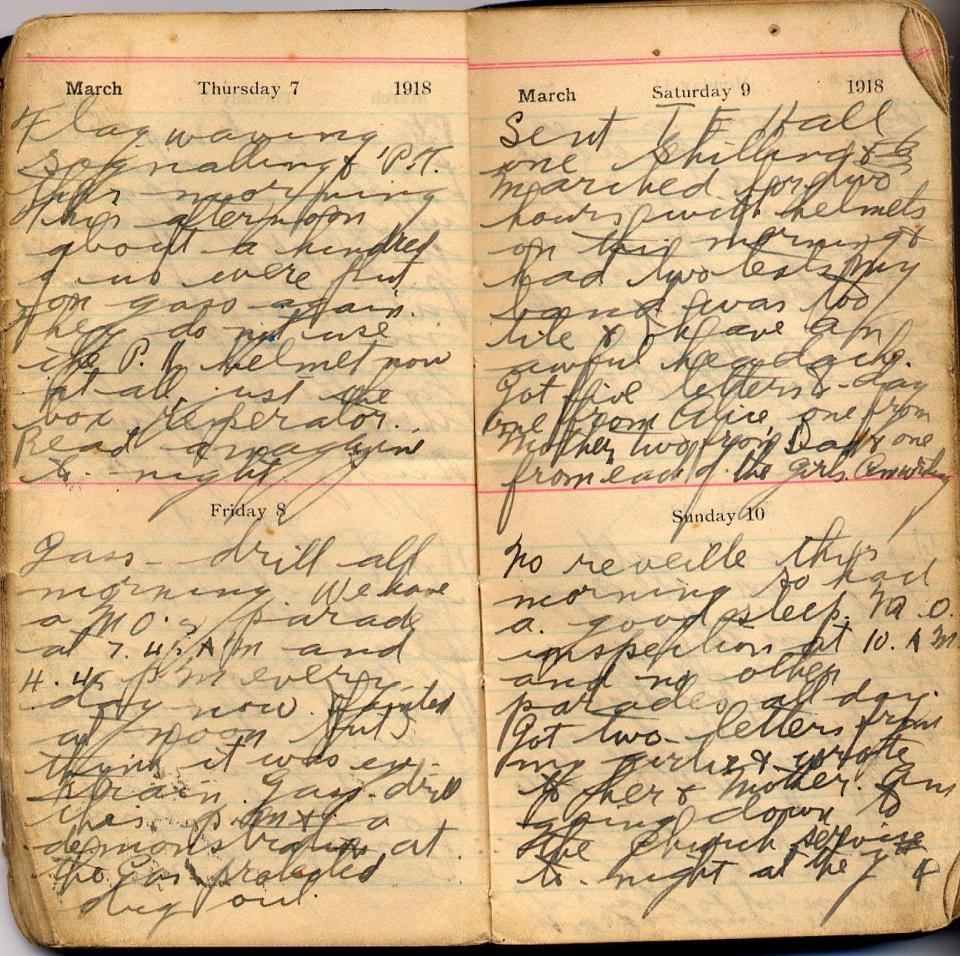 March Thursday 7 1918
Flag waving
signalling & P.T.
this morning
this afternoon
about a hundred
of us were put
on gass again.
they do not use
the P.H. helmet now
at all just the
box resperator.
Read a magazine
to-night
Friday 8
Gass-drill all
morning. We have
a M.O.'s parade
at 7.45 A M and
4.45 P M every
day now. I fainted
at noon but I
think it was
Gass drill
this P.M. & a
demonstration at
the Gas protected
dug out.
March Saturday 9 1918
Sent T E Hall
one shilling &
marched for two
hours with helmets
on this morning &
had two tests my
band was too
tite & I have an
awful headache.
Got five letters to-day
one from Alice, one from
Mother, two from Dad & one
from each of the girls. Am writing
Sunday 10
No reveille this
morning so had
a good sleep. M.O.
inspection at 10. A M
and no other
parades all day.
Got two letters from
my girlie & wrote
to her & Mother. Am
going down to
the Church service
to-night at the Y